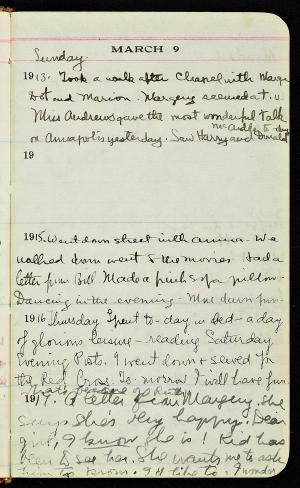 MARCH 9
Sunday
1913. Took a walk after Chapel with Marge
Dot and Marion. Margery seemed at. v.
Miss Andrews gave the most wonderful talk
on Annapolis yesterday. Saw Harry and Donald
McArdle to-day
19
1915. Went down street with Anna. We
walked down went to the movies. Had a
letter from Bill. Made a pink sofa pillow.
Dancing in the evening
1916 Thursday Spent to-day in bed - a day
of glorious leisure - reading Saturday
Evening Posts. I went down & served for
the Red Cross. To-morrow I will have fun
1917. Letter from Margery. She
says she's very happy. Dear
girl, I know she is! Kid has
been to see her. She wants me to ask
him to Prom. I'd like to. I wonder